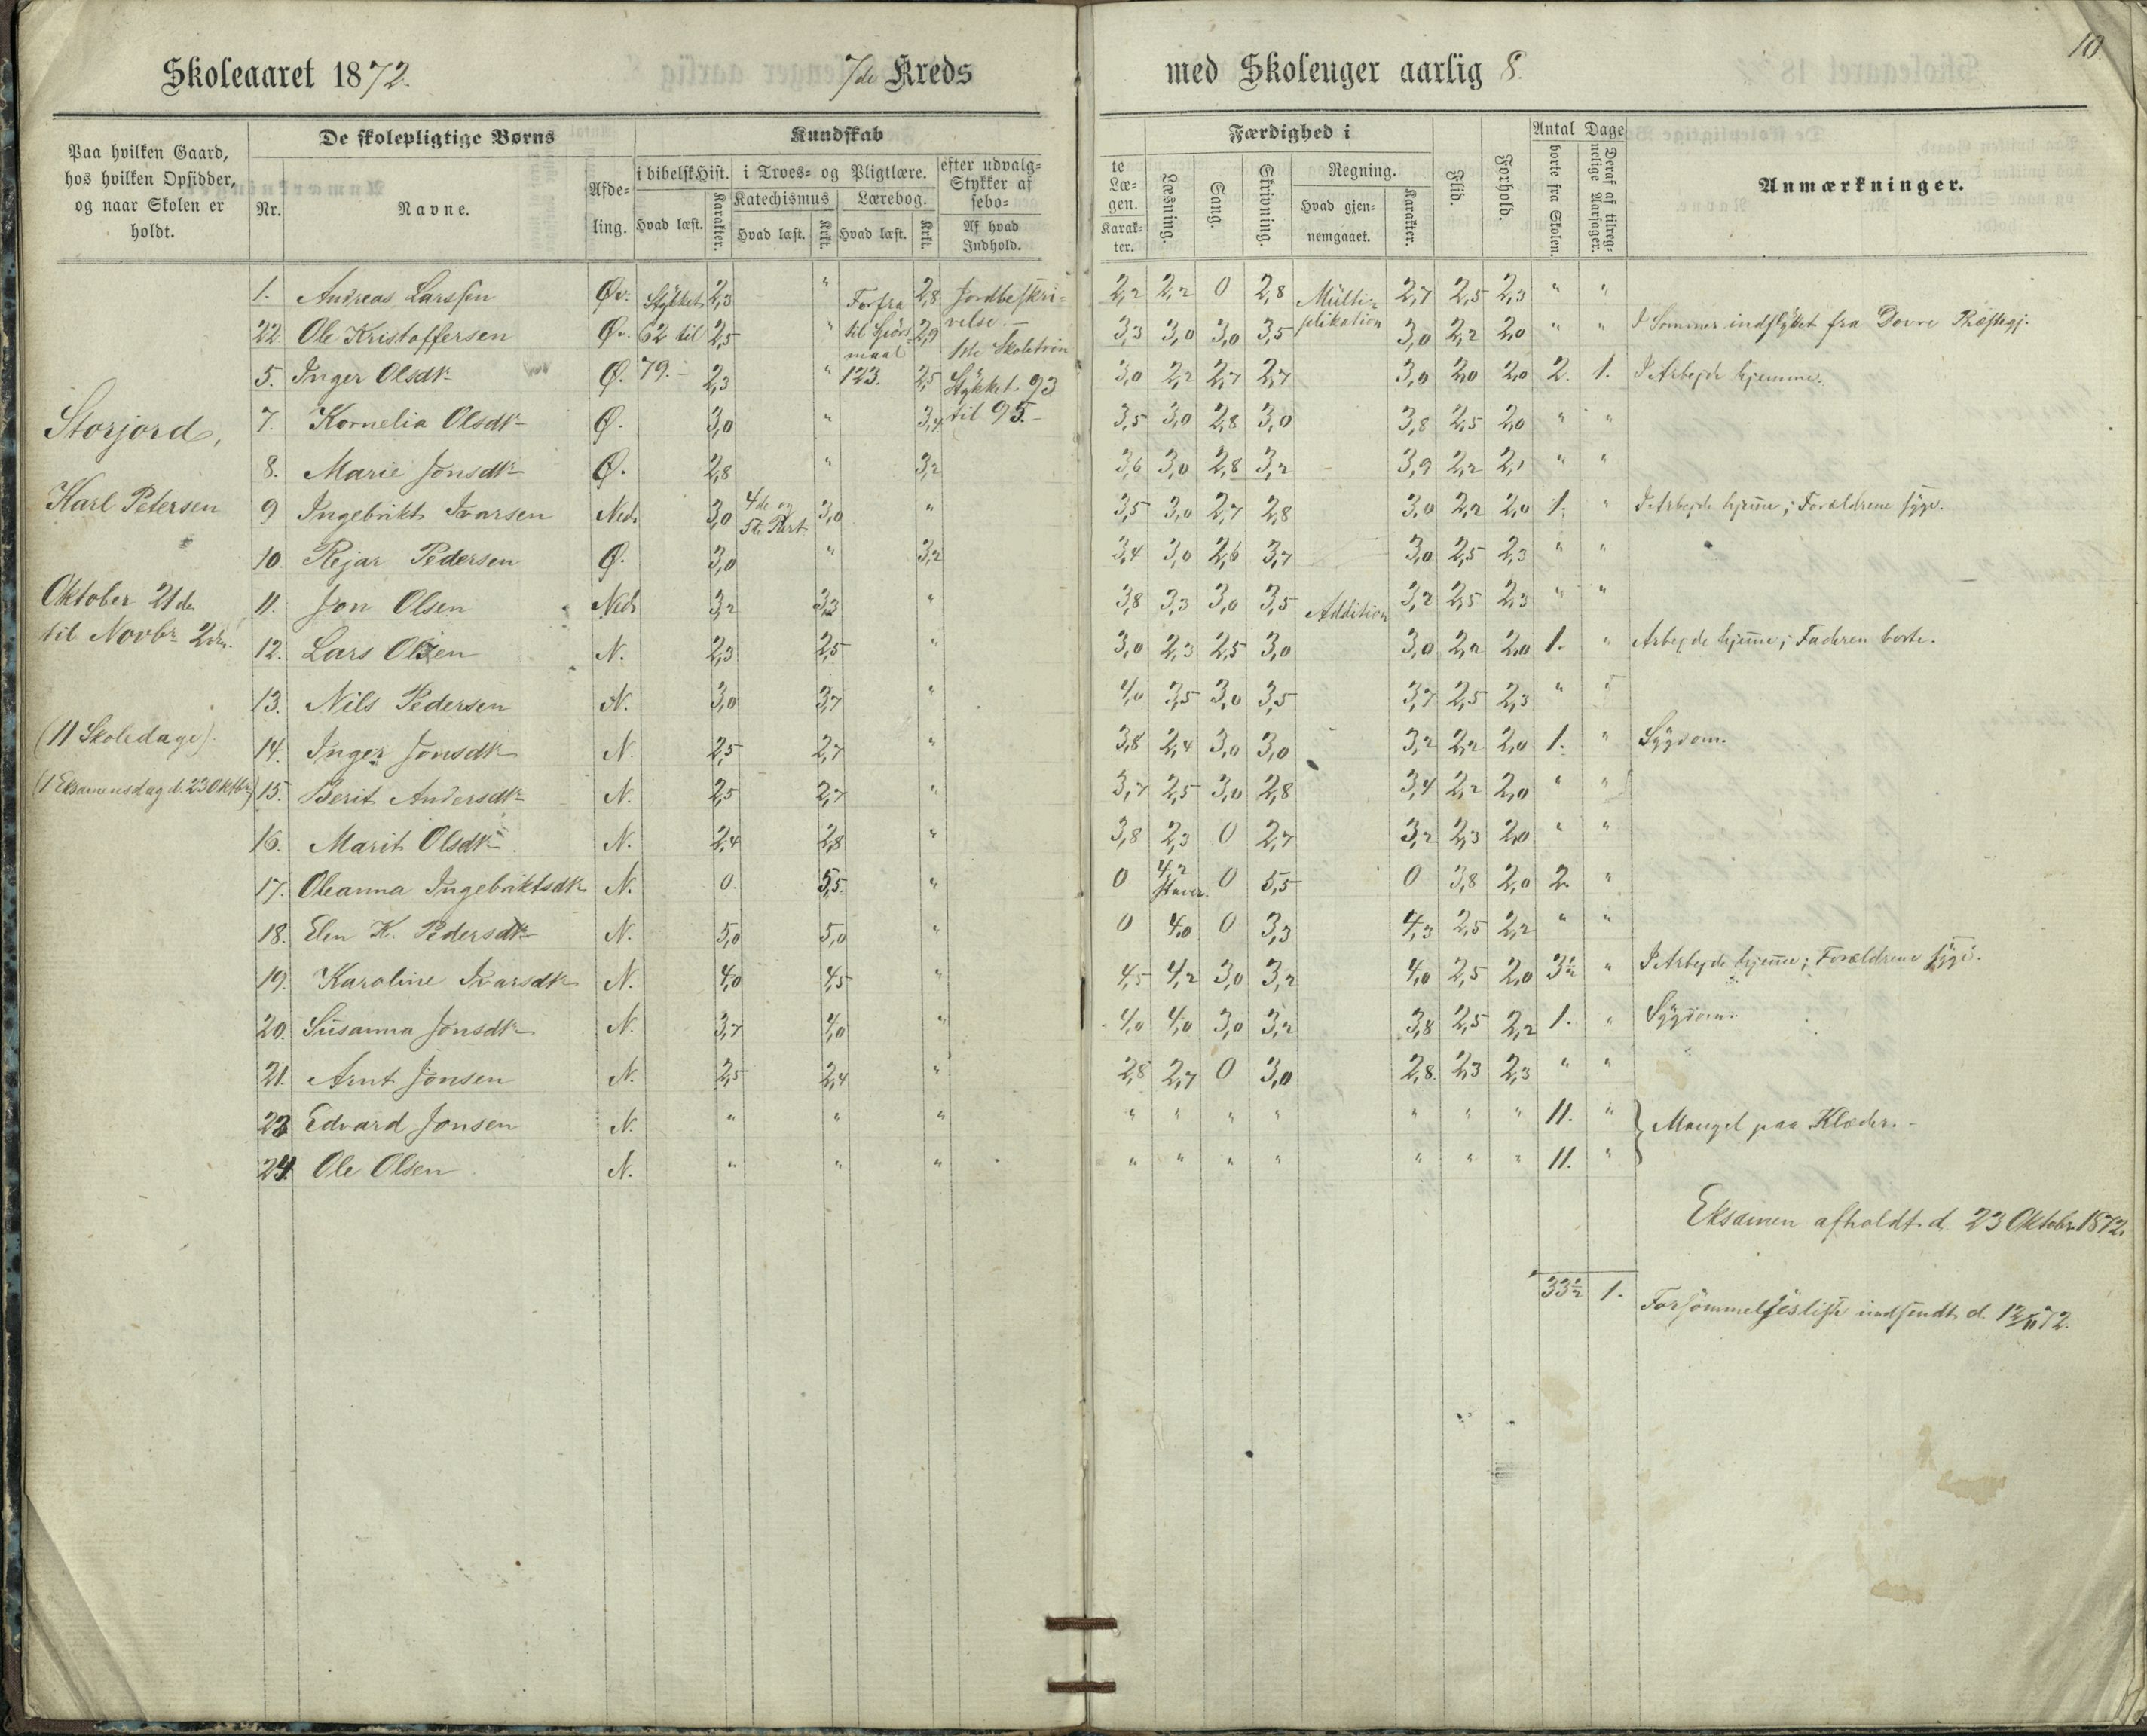 Skoleaaret 1872. 7de Kreds med Skoleuger aarlig 8. 10.
Paa hvilken Gaard,
hos hvilken Opsidder,
og naar Skolen er
holdt.
De skolepligtige Børns
Nr. Navne. Afde-
ling.
Kundskab
i bibelsk Hist. Hvad læst. Karakter.
i Troes- og Pligtlære.
Katechismus Hvad læst. Krkt.
Lærebog. Hvad læst. Krkt.
efter udvalg-
Stykker af
sebo-
Af hvad
Indhold.
te
Læ-
gen.
Karak-
ter.
Færdighed i
Læsning. Sang. Skrivning.
Regning.
Hvad gjen-
nemgaaet. Karakter.
Flid. Forhold.
Antal Dage
borte fra Skolen. Deraf af tilreg-
nelige Aarsager.
Anmærkninger.
Storjord,
Karl Petersen
Oktober 21de
til Novbr 2den.
(11 Skoledage).
(1 Eksamensdag d. 23 Oktbr)
1. Andreas Larssen Øv. Stykket 2,3 " Forfra 2,8 Jordbeskri- 2,2 2,2 0 2,8 Multi- 2,7 2,5 2,3 " "
22. Ole Kristoffersen Øv. 62 til 2,5 " til Spørs- 2,9 velse.- 3,3 3,0 3,0 3,5 plikation 3,0 2,2 2,0 " " I Sommer indflyttet fra Dovre Præstegj.
maal 1ste Skoletrin
5. Inger Olsdtr Ø. 79.- 2,3 " 123. 2,5 Stykket 93 3,0 2,2 2,7 2,7 3,0 2,0 2,0 2. 1. I Arbejde hjemme.
7. Kornelia Olsdtr Ø. 3,0 " 3,4 til 95.- 3,5 3,0 2,8 3,0 3,8 2,5 2,0 " "
8. Marie Jonsdtr Ø. 2,8 " 3,2 3,6 3,0 2,8 3,2 3,9 2,2 2,1 " "
9 Ingebrikt Ivarsen Ned. 3,0 4de og 5te Part 3,0 " 3,5 3,0 2,7 2,8 3,0 2,2 2,0 1. " I Arbejde hjem̅e; Forældrene syge.
10. Rejar Pedersen Ø. 3,0 " 3,2 3,4 3,0 2,6 3,7 3,0 2,5 2,3 " "
11. Jon Olsen Ned. 3,2 3,3 " 3,8 3,3 3,0 3,5 Addition 3,2 2,5 2,3 " "
12. Lars Olsen N. 2,3 2,5 " 3,0 2,3 2,5 3,0 3,0 2,2 2,0 1. " Arbejde hjem̅e; Faderen borte.
13. Nils Pedersen N. 3,0 3,7 " 4,0 3,5 3,0 3,5 3,7 2,5 2,3 " "
14. Inger Jonsdtr N. 2,5 2,7 " 3,8 2,4 3,0 3,0 3,2 2,2 2,0 1. " Sygdom.
15. Berit Andersdtr N. 2,5 2,7 " 3,7 2,5 3,0 2,8 3,4 2,2 2,0 " "
16. Marit Olsdtr N. 2,4 2,8 " 3,8 2,3 0 2,7 3,2 2,3 2,0 " "
17. Oleanna Ingebriktsdtr N. 0. 5,5. " 0 4,2 staver. 0 5,5 0 3,8 2,0 2. "
18. Elen K. Pedersdtr N. 5,0 5,0 " 0 4,0 0 3,3 4,3 2,5 2,2 " "
19. Karoline Ivarsdtr N. 4,0 4,5 " 4,5 4,2 3,0 3,2 4,0 2,5 2,0 3½ " I Arbejde hjem̅e; Forældrene syge.
20. Susanna Jonsdtr N. 3,7 4,0 " 4,0 4,0 3,0 3,2 3,8 2,5 2,2 1. " Sygdom.
21. Arnt Jonsen N. 2,5 2,4 " 2,8 2,7 0 3,0 2,8. 2,3 2,3 " "
23 Edvard Jonsen N. " " " " " " " " " " 11. " } Mangel paa Klæder.-
24. Ole Olsen N. " " " " " " " " " " 11. "
Eksamen afholdt d. 23 Oktobr 1872.
33½ 1. Forsømmelsesliste indsendt d. 12/11 72.